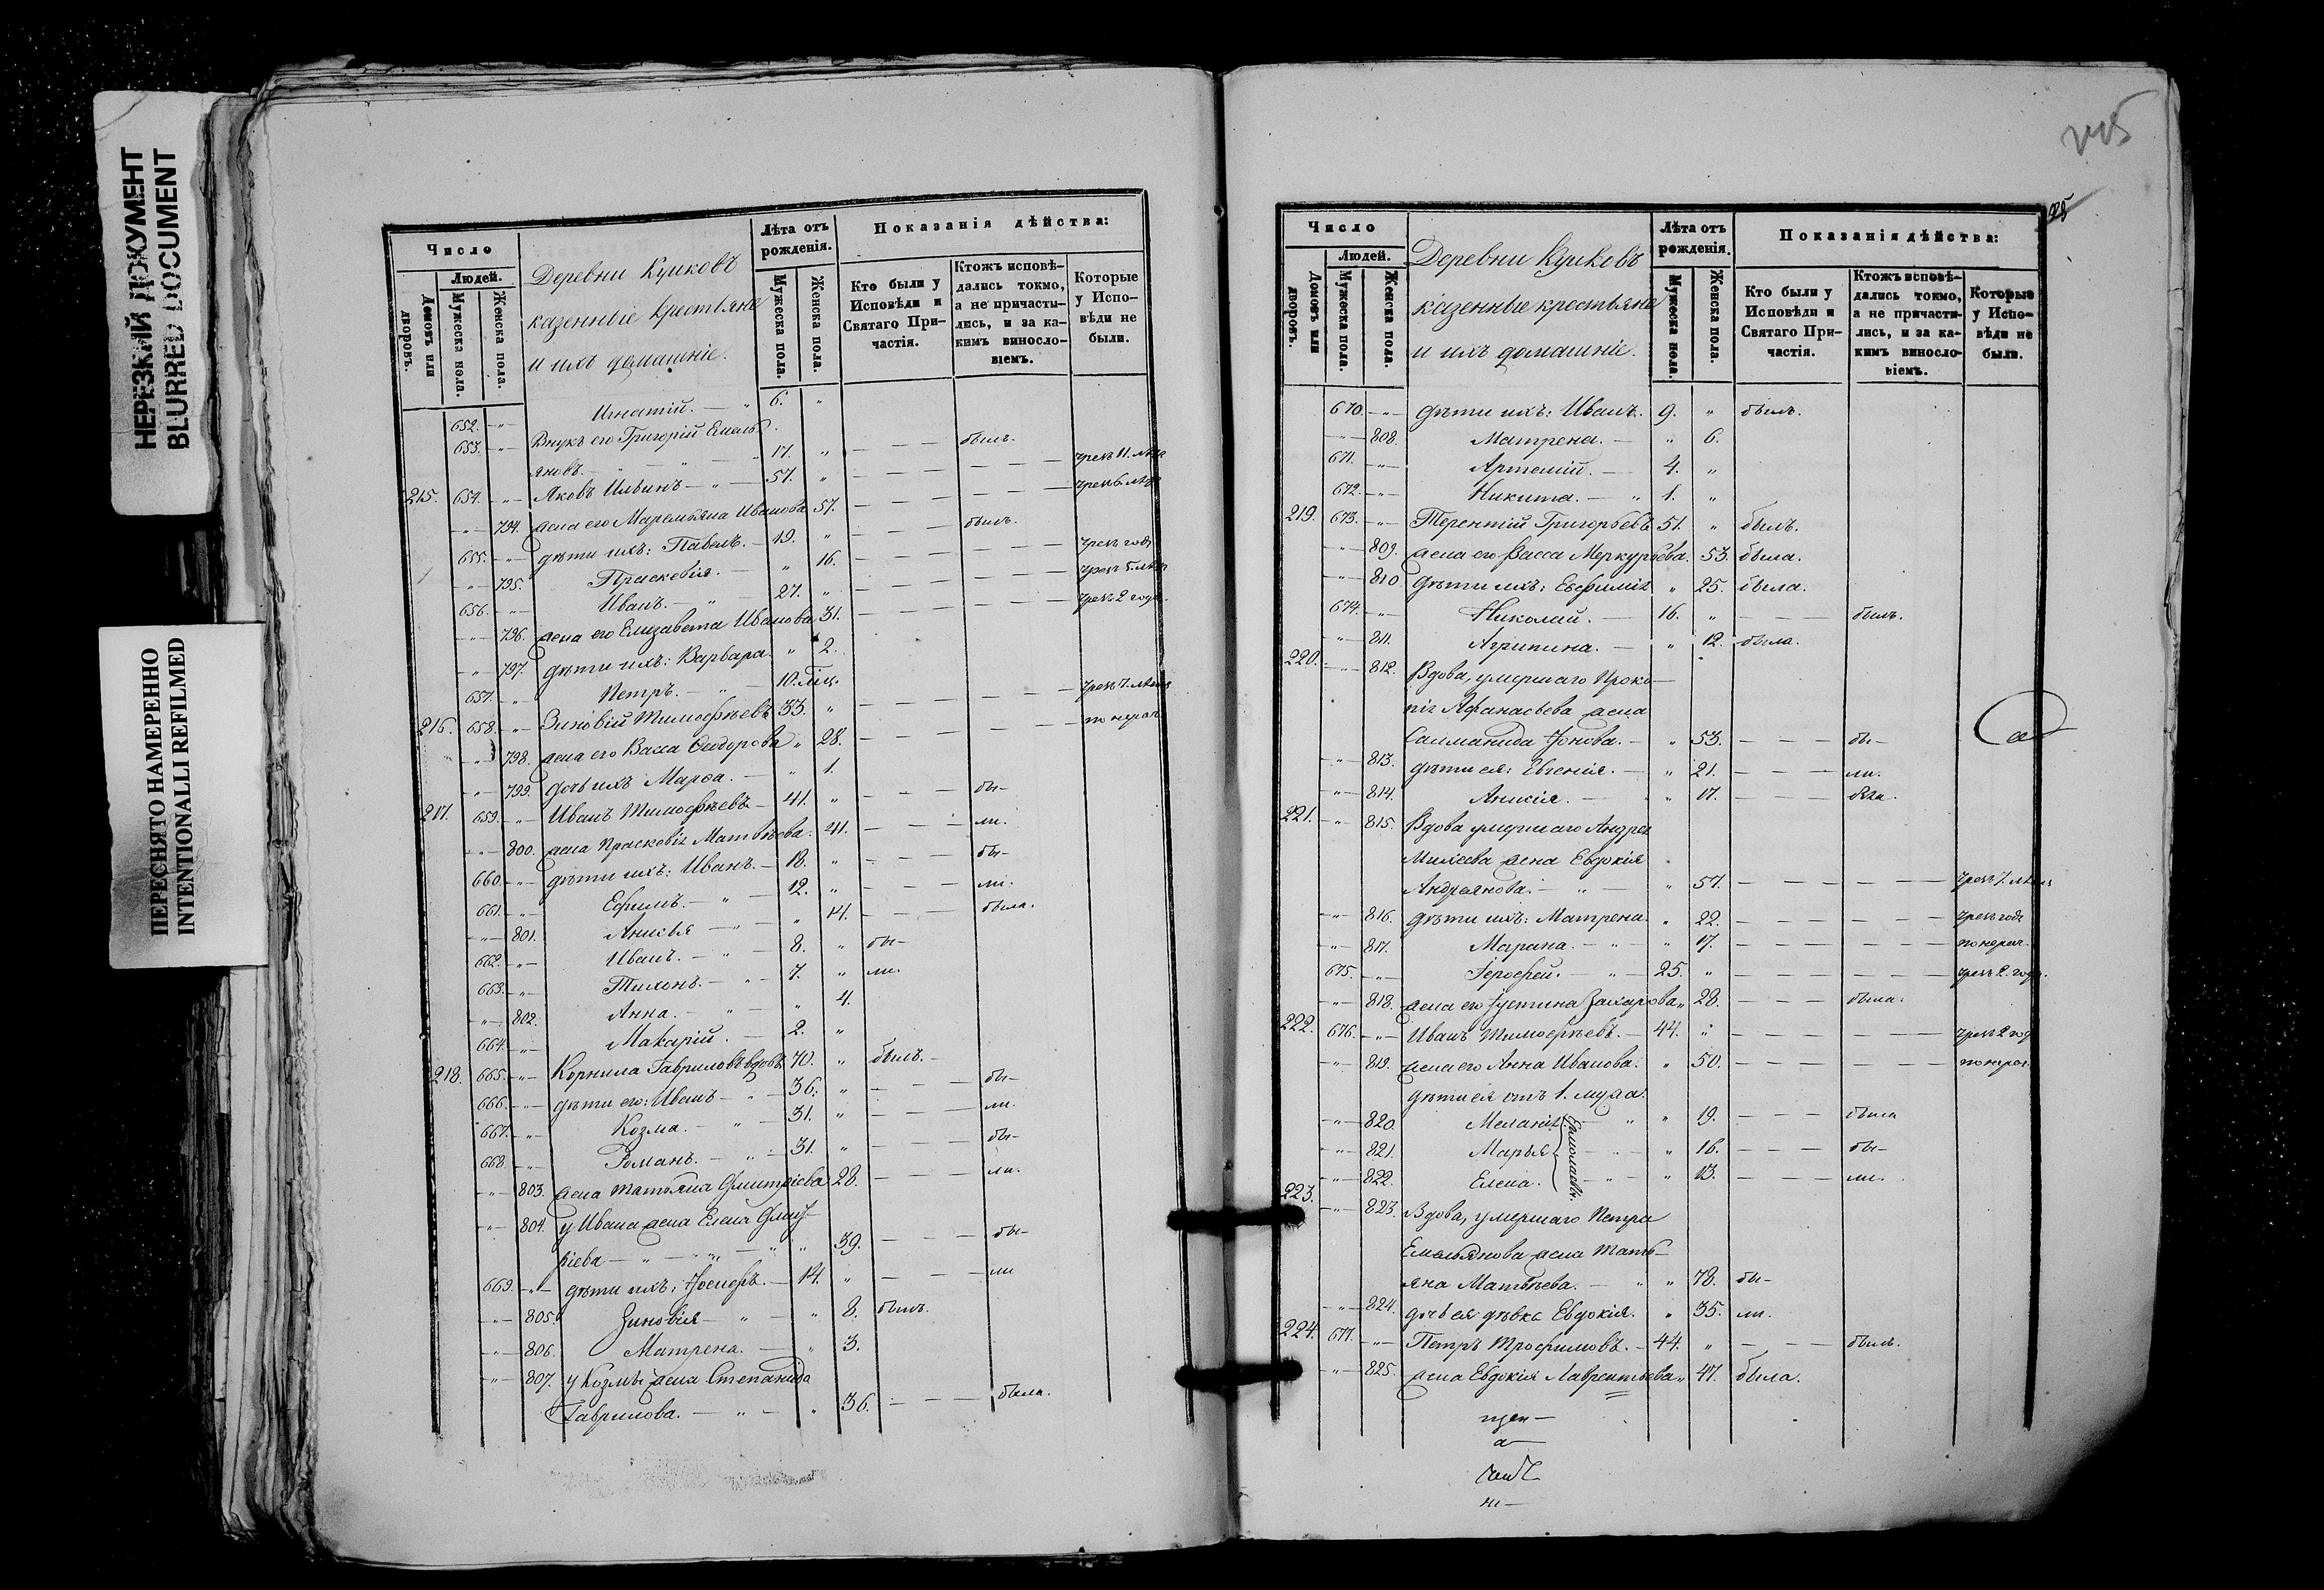 НЕРЕЗКИЙ ДОКУМЕНТ
BLURRED DOCUMENT
ПЕРЕСНЯТО НАМЕРЕННО
INTENTIONALLI REFILMED
Число
Людей.
Домовъ или дворовъ.
Мужеска пола.
Женска пола.
Деревни Кушковъ
казенные крестьяне
и ихъ домашніе.
Лѣта отъ рожденія.
Мужеска пола.
Женска пола.
Показанія дѣйства:
Кто были у Исповѣди и Святаго Причастія.
Ктожъ исповѣдались токмо, а не причастились, и за какимъ винословіемъ.
Которые у Исповѣди не были.
652. Игнатій. 6.
653. Внукъ его Григорій Емель
яновъ 17. былъ.
215. 654. Яковъ Ильинъ 57. чрезъ 11. лѣтъ
794. жена его Маремьяна Иванова 57. чрезъ 6 лѣтъ
655. дѣти ихъ: Павелъ. 19. былъ.
795. Прасковія. 16. чрезъ годъ
656. Иванъ. 27. чрезъ 5. лѣтъ
796. жена его Елизавета Иванова 31. чрезъ 2 года.
797. дѣти ихъ: Варвара. 2.
657. Петръ. 10. мѣц.
216. 658. Зиновій Тимофѣевъ 33. чрезъ 7. лѣтъ
798. жена его Васса Ѳедорова 28. по нерач.
799. дочь ихъ Марѳа. 1.
217. 659. Иванъ Тимофѣевъ 41. бы-
800. жена Прасковія Матвѣева. 41. ли.
660. дѣти ихъ: Иванъ. 18. бы-
661. Ефимъ. 12. ли.
801. Анисья 14. была.
662. Иванъ. 8. бы-
663. Тихонъ. 7. ли.
802. Анна. 4.
664. Макарій. 2.
218. 665. Корнила Гавриловъ вдовъ 70. былъ.
666. дѣти его: Иванъ 36. бы-
667. Козма. 31. ли.
668. Романъ. 31. бы-
803. жена Татьяна Дмитріева 28. ли.
804. у Ивана жена Елена Дмит-
ріева 39. бы-
669. дѣти ихъ: Іосифъ. 14. ли
805. Зиновія 8. былъ.
806. Матрена. 3.
807. у Козмы жена Степанида
Гаврилова. 36. была.
25
Число
Людей.
Домовъ или дворовъ.
Мужеска пола.
Женска пола.
Деревни Кушковъ
казенные крестьяне
и ихъ домашніе.
Лѣта отъ рожденія.
Мужеска пола.
Женска пола.
Показанія дѣйства:
Кто были у Исповѣди и Святаго Причастія.
Ктожъ исповѣдались токмо, а не причастились, и за какимъ винословіемъ.
Которые у Исповѣди не были.
670. дѣти ихъ: Иванъ. 9. былъ.
808. Матрена. 6.
671. Артемій. 4.
672. Никита. 1.
219. 673. Терентій Григорьевъ 51. былъ.
809. жена его Васса Меркурьева. 53. была.
810. дѣти ихъ: Евфимія 25. была.
674. Николай. 16. былъ.
811. Агрипина. 12. была.
220. 812. Вдова, умершаго Проко-
пія Афанасьева жена
Саламанида Іонова. 53. бы-
813. дѣти ея: Евгенія. 21. ли.
814. Анисія. 17. была.
221. 815. Вдова умершаго Андрея
Михеева жена Евдокія
Андреянова. 57. чрезъ 7. лѣтъ
816. дѣти ихъ: Матрена. 22. чрезъ годъ
817. Марина. 17. по нерач.
675. Іерофей. 25. чрезъ 2. года.
818. жена его Іустина Захарова 28. была.
222. 676. Иванъ Тимофѣевъ. 44. чрезъ 2 год
819. жена его Анна Иванова. 50. по нерач.
дѣти ея отъ 1. мужа.
820. Меланія 19. была
821. Марья 16. бы-
822. Елена. 13. ли.
223. 823. Вдова, умершаго Петра
Емельянова жена Тать-
яна Матвѣева. 78. бы-
824. дочь ея дѣвка Евдокія. 35. ли.
224. 677. Петръ Трофимовъ. 44. былъ.
825. жена Евдокія Лаврентьева 47. была.